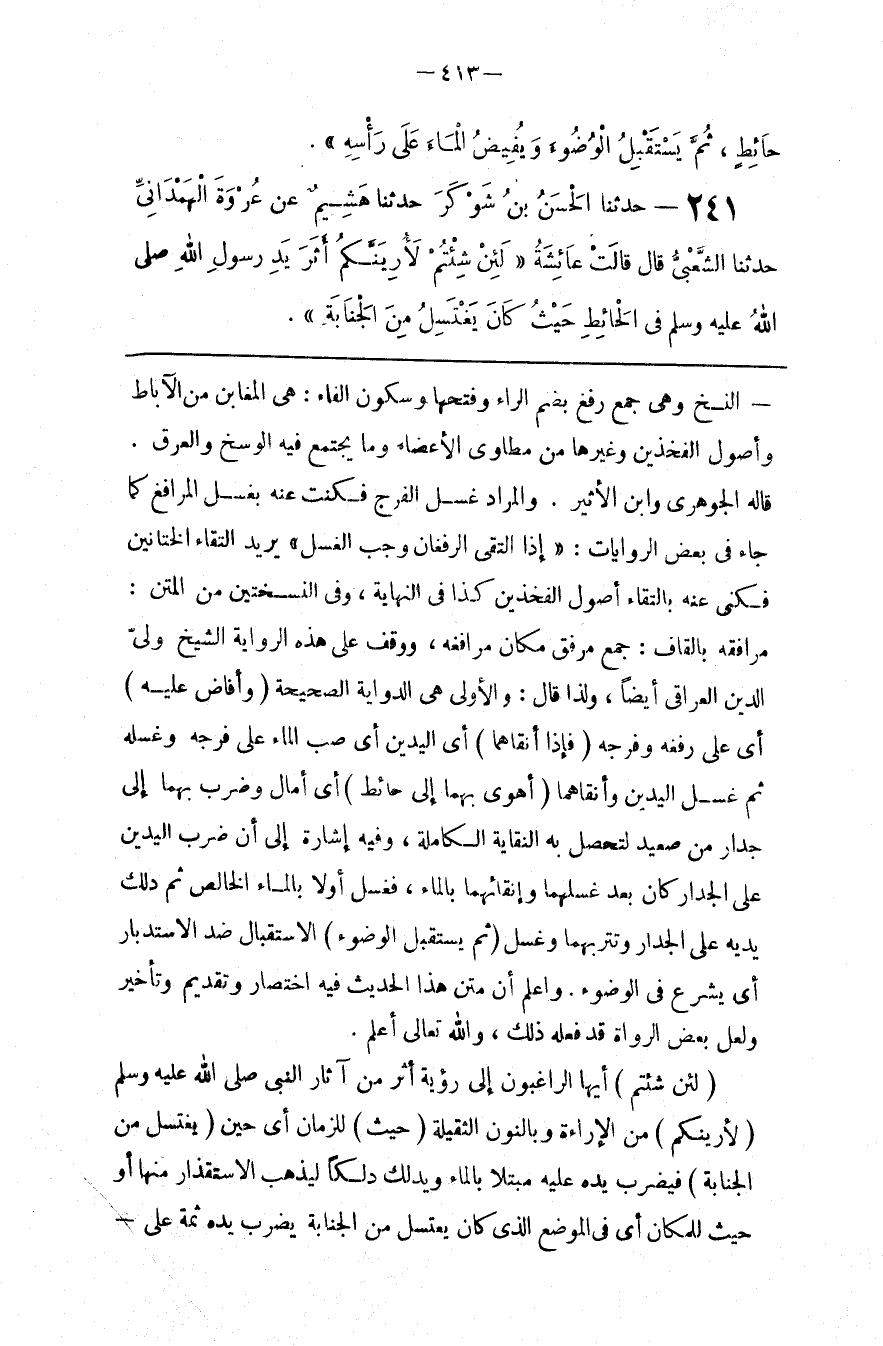 — ٤١٣ —
حَائِطٍ ، ثُمَّ يَسْتَقْبِلُ الْوُضُوءَ وَيُفِيضُ الْمَاءَ عَلَى رَأْسِهِ » .
٢٤١ — حدثنا الْحَسَنُ بنُ شَوْكَرَ حدثنا هَشِيمٌ عن عُرْوَةَ الْهَمْدَانِىِّ
حدثنا الشَّعْبِىُّ قال قالَتْ عَائِشَةُ « لَئِنْ شِئْتُمْ لَأُرِيَنَّكُمُ أَثَرَ يَدِ رسولِ اللهِ صلى
اللهُ عليه وسلم فى الحَائِطِ حَيْثُ كَانَ يَغْتَسِلُ مِنَ الْجْنَابَةِ » .
— النسخ وهى جمع رفغ بضم الراء وفتحها وسكون الفاء : هى المغابن من الآباط
وأصول الفخذين وغيرها من مطاوى الأعضاء وما يجتمع فيه الوسخ والعرق .
قاله الجوهرى وابن الأثير . والمراد غسل الفرج فكنت عنه بغسل المرافغ كما
جاء فى بعض الروايات : « إذا التقى الرفغان وجب الغسل » يريد التقاء الختانين
فكنى عنه بالتقاء أصول الفخذين كذا فى النهاية ، وفى النسختين من المتن :
مرافقه بالقاف : جمع مرفق مكان مرافغه ، ووقف على هذه الرواية الشيخ ولىّ
الدين العراقى أيضاً ، ولذا قال : والأولى هى الدواية الصحيحة ( وأفاض عليه )
أى على رفغه وفرجه ( فإذا أنقاهما ) أى اليدين أى صب الماء على فرجه وغسله
ثم غسل اليدين وأنقاهما ( أهوى بهما إلى حائط ) أى أمال وضرب بهما إلى
جدار من صعيد لتحصل به النقاية الكاملة ، وفيه إشارة إلى أن ضرب اليدين
على الجدار كان بعد غسلهما وإنقائهما بالماء ، فغسل أولا بالماء الخالص ثم دلك
يديه على الجدار وتتربهما وغسل ( ثم يستقبل الوضوء ) الاستقبال ضد الاستدبار
أى يشرع فى الوضوء . واعلم أن متن هذا الحديث فيه اختصار وتقديم وتأخير
ولعل بعض الرواة قد فعله ذلك ، والله تعالى أعلم .
( لئن شئتم ) أيها الراغبون إلى رؤية أثر من آثار النبى صلى الله عليه وسلم
( لأرينكم ) من الإراءة وبالنون الثقيلة ( حيث ) للزمان أى حين ( يغتسل من
الجنابة ) فيضرب يده عليه مبتلا بالماء ويدلك دلكاً ليذهب الاستقذار منها أو
حيث للمكان أى فى الموضع الذى كان يعتسل من الجنابة يضرب يده ثمة على —